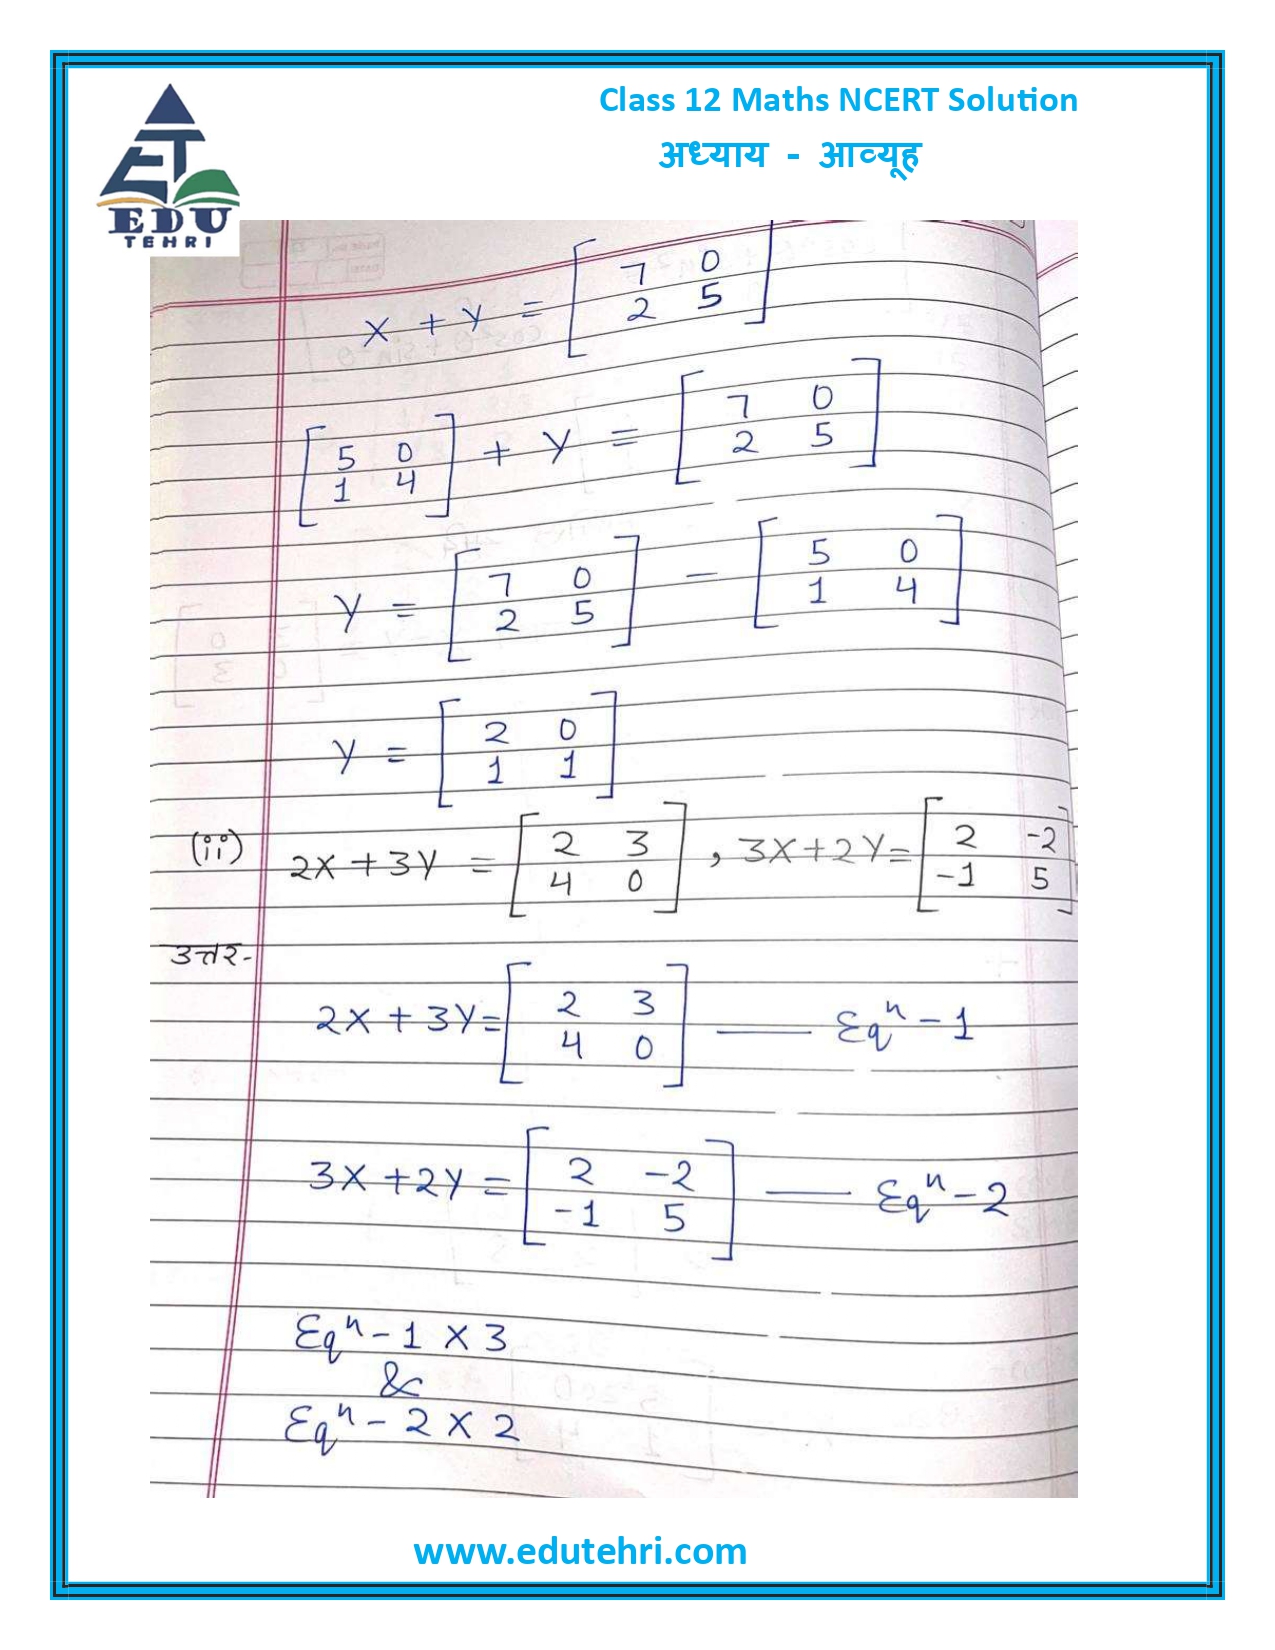 Class 12 Maths NCERT Solution
अध्याय - आव्यूह
EDU
TEHRI
X + Y = [7 0
2 5]
[5 0
1 4] + Y = [7 0
2 5]
Y = [7 0
2 5] - [5 0
1 4]
Y = [2 0
1 1]
(ii) 2X + 3Y = [2 3
4 0], 3X + 2Y = [2 -2
-1 5]
उत्तर-
2X + 3Y = [2 3
4 0] — Eqⁿ - 1
3X + 2Y = [2 -2
-1 5] — Eqⁿ - 2
Eqⁿ - 1 X 3
&
Eqⁿ - 2 X 2
www.edutehri.com